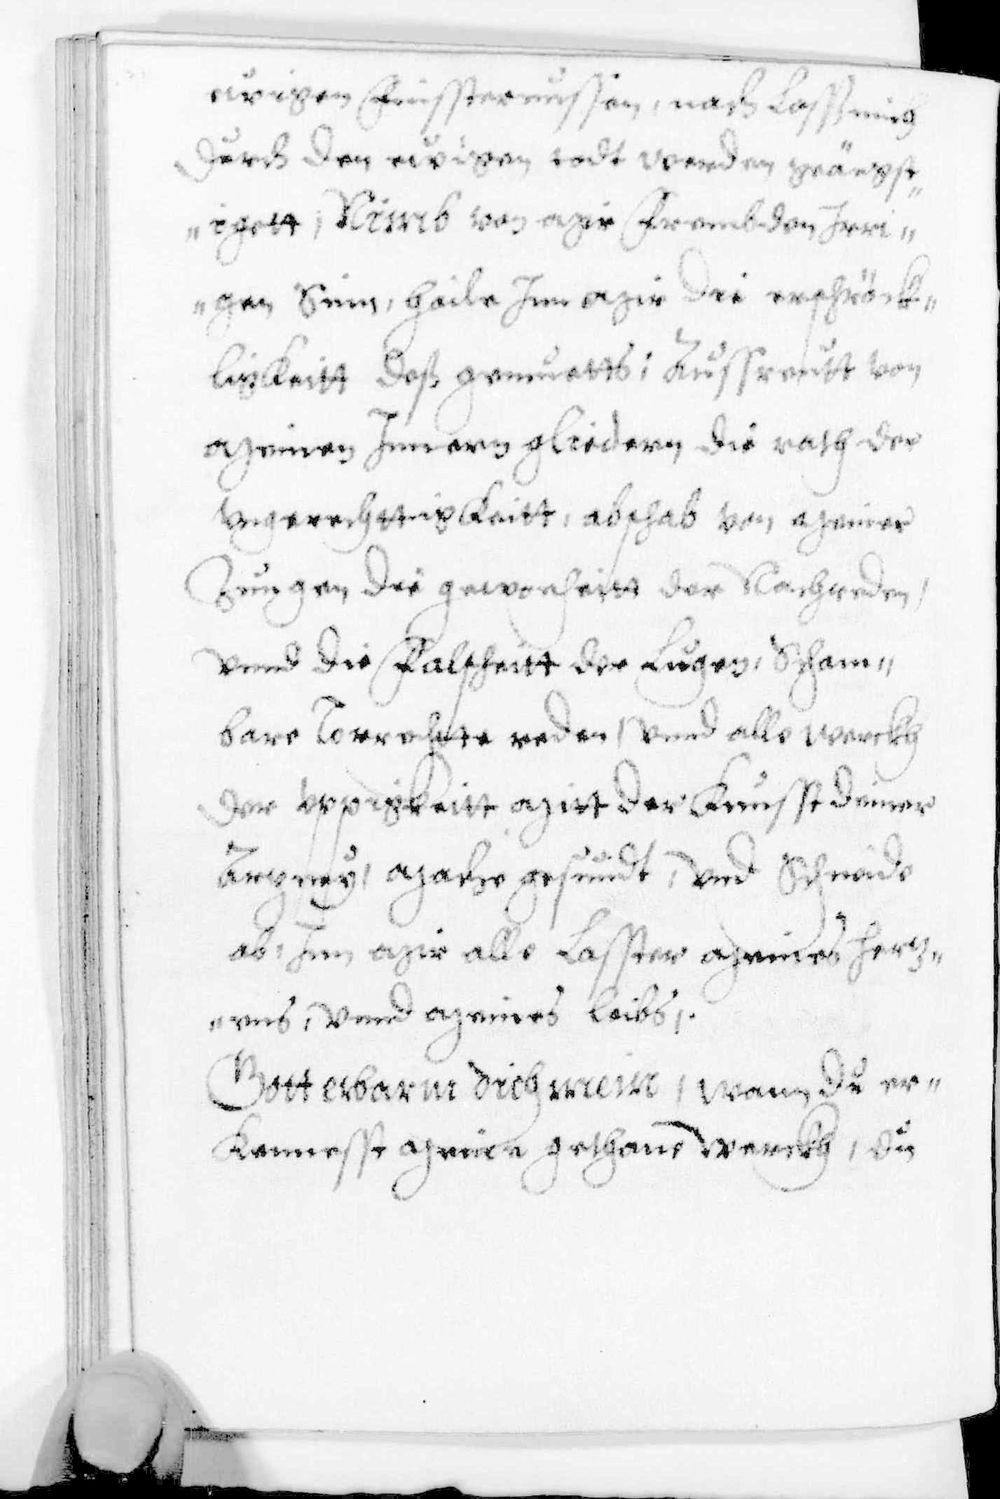 ewigen Finssternussen, nach Lass mich
durch den ewigen todt werden geängst„
„igett, Nimb von mir Frembden Irri„
„gen Sinn, haile Inn mir die erschröck„
ligkeitt deß gemüetts, Aussreütt von
meinen Innern gliedern die rath der
Vngerechttigkeitt, abschab von meiner
Zungen die gewonheitt der Nachreden,
vnnd die Falschheitt der Lugen, Scham„
bare Torrechte reden, vnnd alle werckh
der vppigkeitt mitt der Kunsst deiner
Artzney, mache gesundt, vnd Schneide
ab, Inn mir alle Lasster meines hertz„
„ens, vnnd meines leibs,.
Gott erbarm dich mein, wann du er„
kennesst meine gethane werckh, du